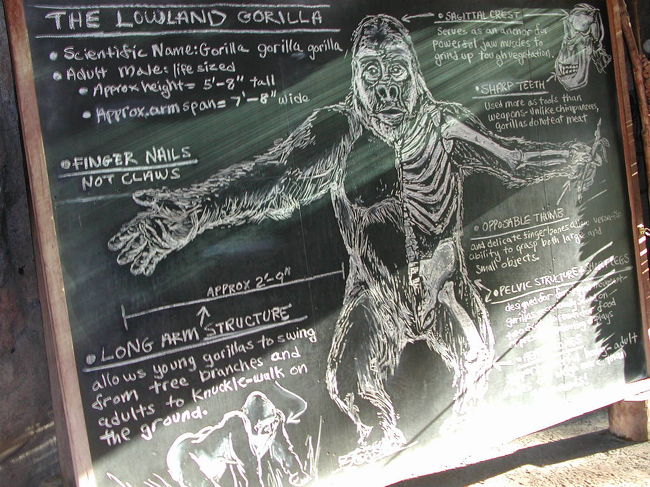 THE LOWLAND GORILLA
• Scientific Name: Gorilla gorilla gorilla
• Adult Male: life sized
• Approx height = 5'-8" tall
• Approx. arm span = 7'-8" wide
• FINGER NAILS
NOT CLAWS
APPROX 2'-9"
• LONG ARM STRUCTURE
allows young gorillas to swing
from tree branches and
adults to knuckle-walk on
the ground.
• SAGITTAL CREST
Serves as an anchor for
powerful jaw muscles to
grind up tough vegetation.
• SHARP TEETH
Used more as tools than
weapons - Unlike chimpanzees,
gorillas do not eat meat
• OPPOSABLE THUMB
and delicate finger bones allow versatile
ability to grasp both large and
small objects.
• PELVIC STRUCTURE & LEGS
designed for
gorillas
food
adult